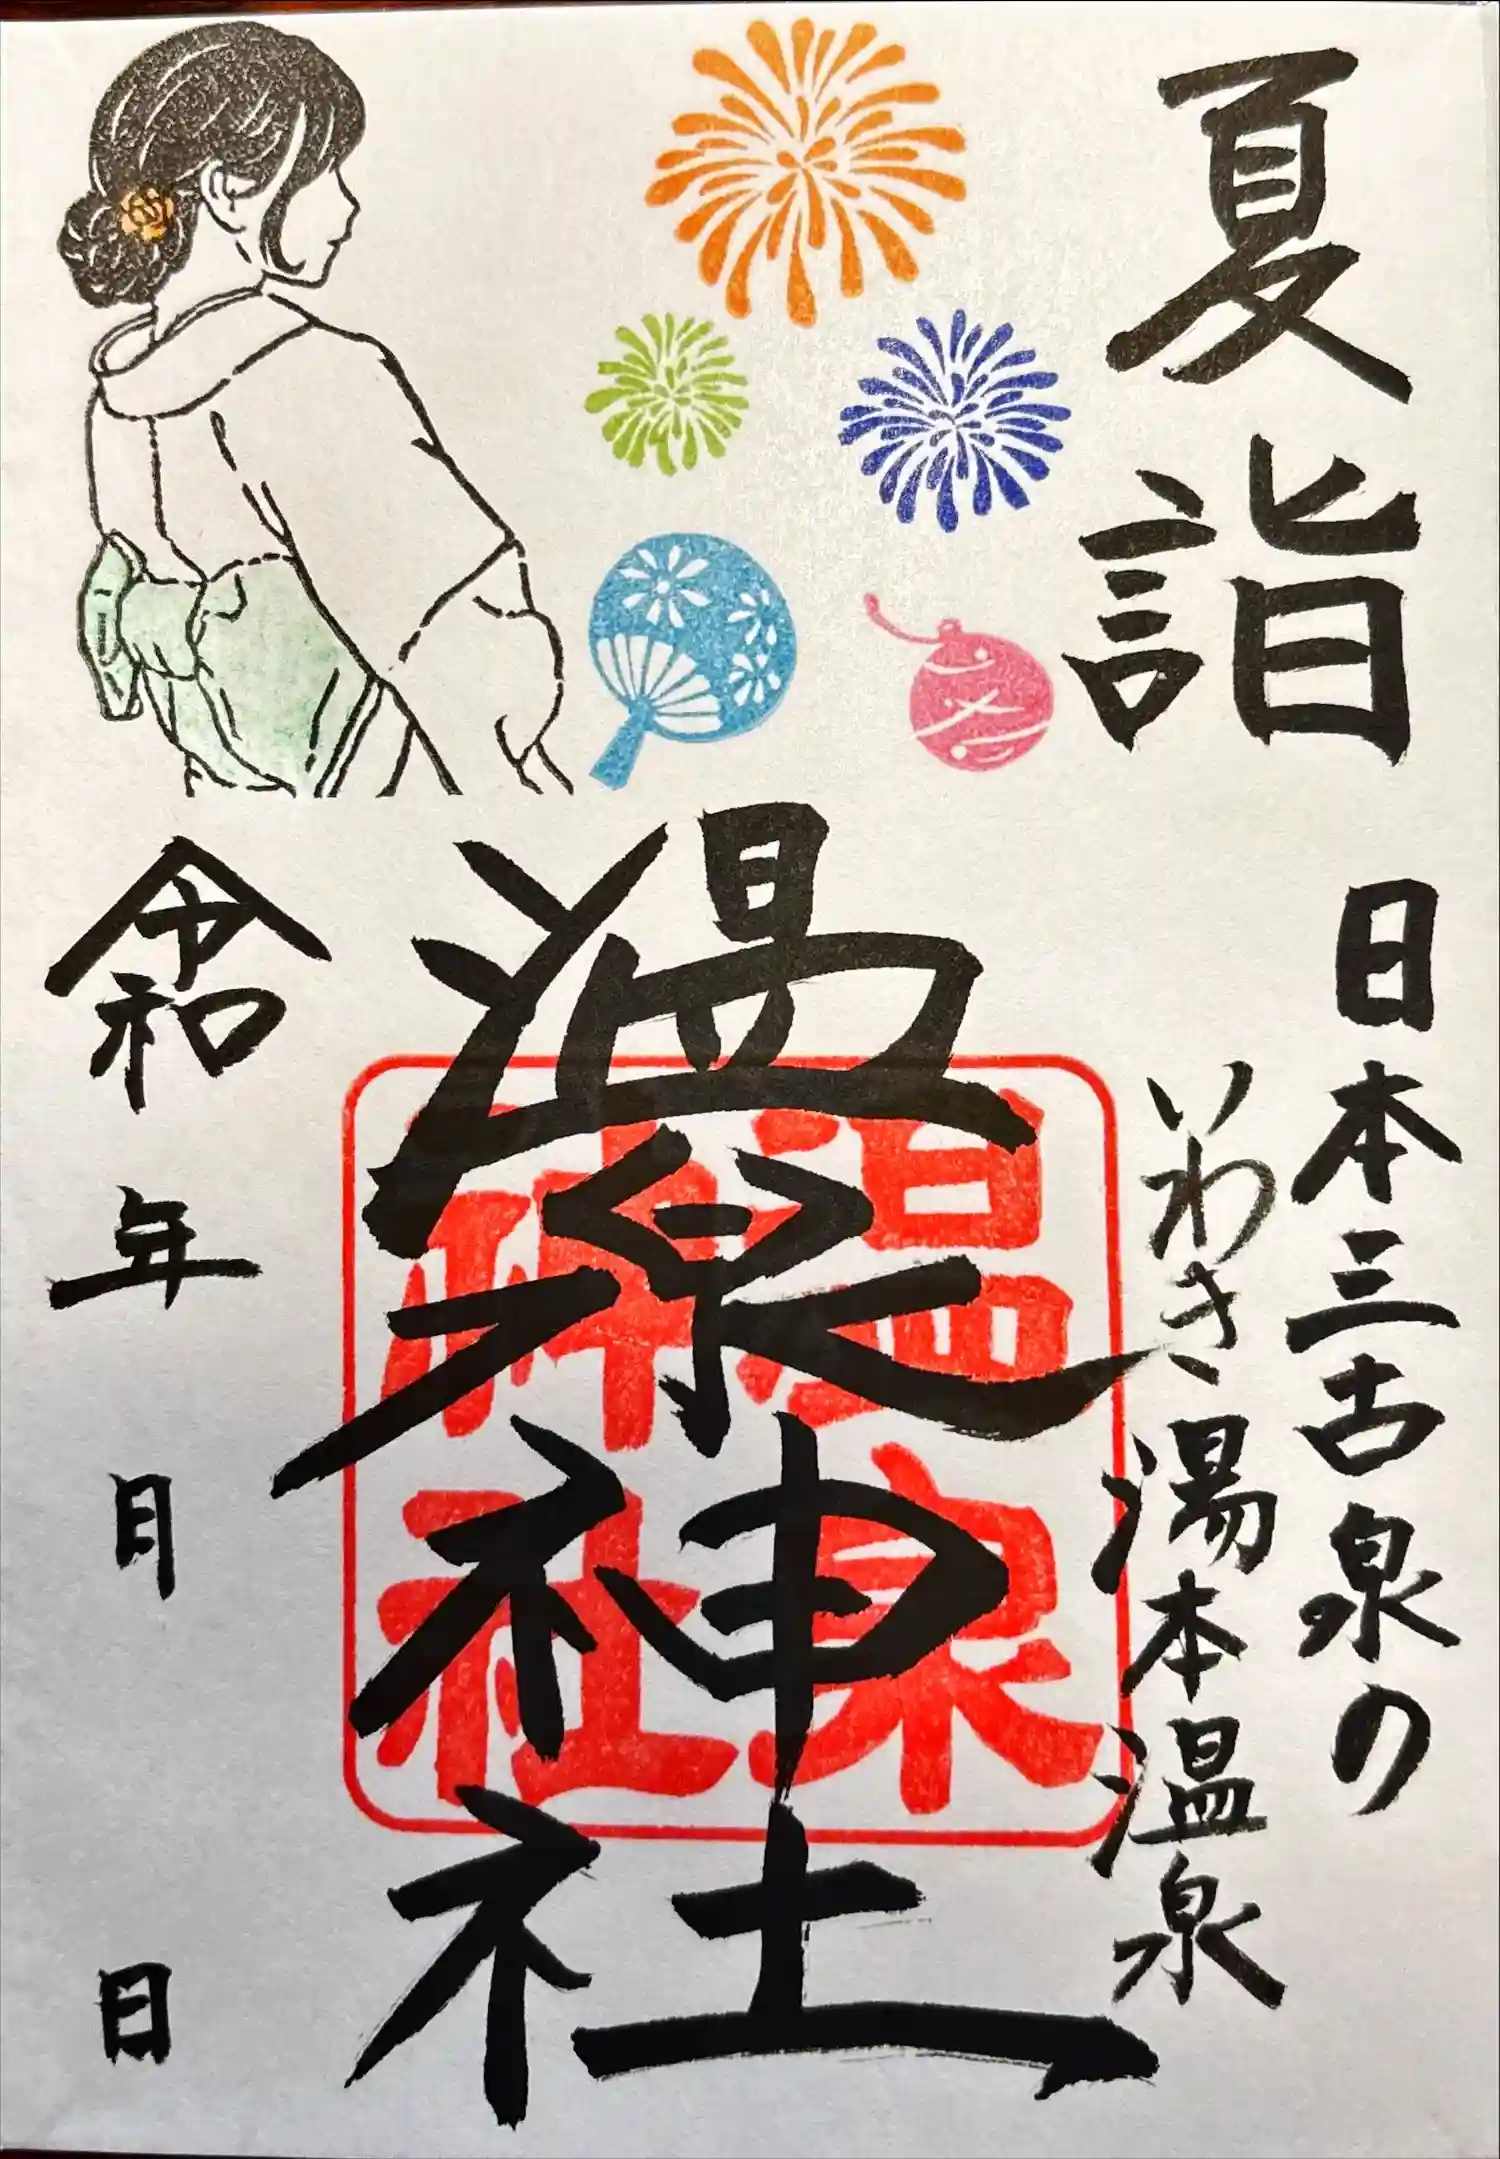 夏詣
日本三古泉の
いわき湯本温泉
温泉神社
温泉
神社
令和 年 月 日